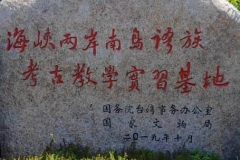 海峡两岸南岛语族
考古教學實習基地
国务院台湾事务办公室
国家文物局
二〇一九年十月